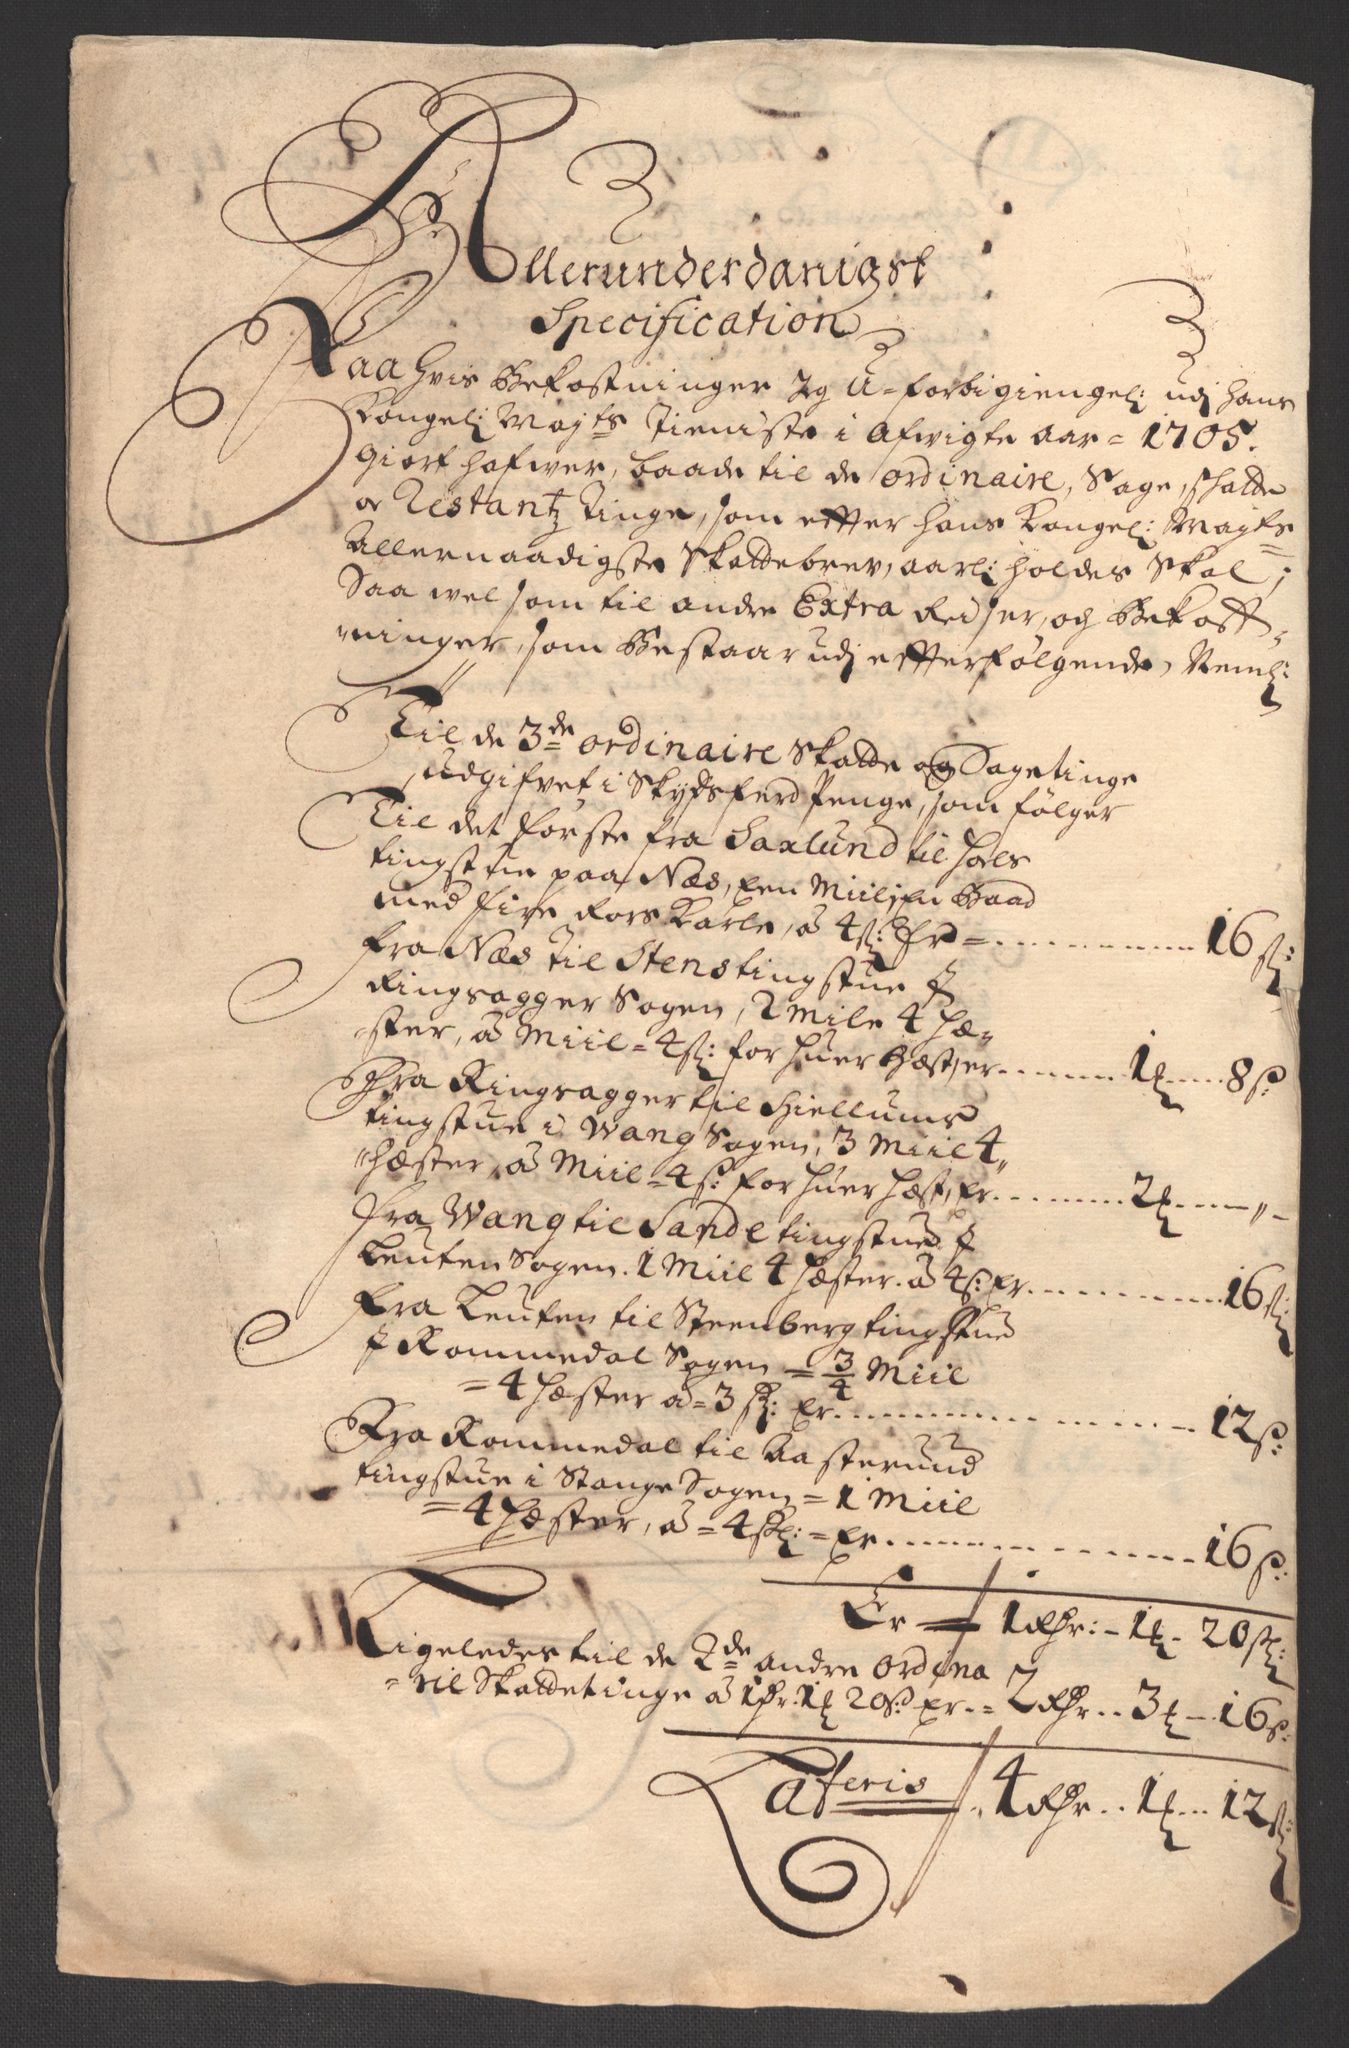 Allerunderdanigst
Specification
Paa hvis Bekostninger Jeg U-forbigiengel: udj hans
Kongel: Mayts Tieniste i afwigte aar = 1705.
giort hafwer, baade til de ordinaire, Sage, schatte
oc Restantz Tinge, som effter hans Kongel: Mayts
Allernaadigste Skattebrev, aarl: holdes Skal;
Saa vel som til andre Extra Reiser, och Bekost-
ninger, som Bestaar udj effterfølgende, Neml:
Til de 3de ordinaire Skatte og Sagetinge
udgifvet i Skydsferd Penge, som følger
Til det første fra Saxlund til Hols
tingstue paa Næs, een Miil, en Baad
med fire Rors Karle, à 4 s: Er = 16 s:
Fra Næs til Stens tingstue i
Ringsagger Sogen, 2 Mile 4 Hæ-
ster, à Miil = 4 s: for huer Hæst, er 1 8 s:
Fra Ringsagger til Hiellums
tingstue i Wang Sogen, 3 Miil 4
Hæster, à Miil = 4 s: for huer Hæst, Er 2 "
Fra Wang til Sande tingstue i
Leuten Sogen. 1 Miil 4 Hæster. à 4 s: Er 16 s:
Fra Leuten til Steenberg tingstue
i Rommedal Sogen = 3/4 Miil
= 4 Hæster à = 3 s: Er 12 s:
Fra Rommedal til Aasterund
tingstue i Stange Sogen = 1 Miil
= 4 Hæster, à = 4 sk: = Er 16 s:
Er 1 Rdr: - 1 - 20 sk:
Ligeledes til de 2de andre ordina
= ril Skattetinge à 1 Rdr: 1 20 s: Er = 2 Rdr 3 16 s:
Lateris 4 Rdr 1 12 s: